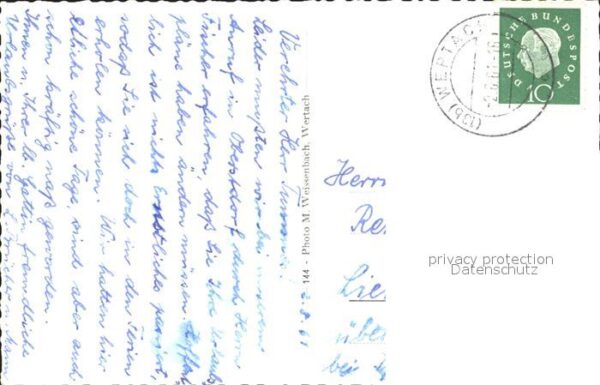 2.8.61
Verehrter Herr
Leider mußten wir bei unserem
Anruf in Oberstdorf durch Herrn
erfahren, daß Sie Ihre Urlaubs-
pläne haben ändern müssen. Hoffent-
lich ist nichts Ernstliches passiert,
sodaß Sie sich doch in den Ferien
erholen können. Wir hatten hier
etliche schöne Tage, sind aber auch
schon kräftig naß geworden.
Ihnen u. Ihrer lb. Gattin freundliche
von
144 - Photo M. Weissenbach, Wertach
(13b) WERTACH
DEUTSCHE BUNDESPOST
10
Herrn
Re
Lie
über
bei
privacy protection
Datenschutz